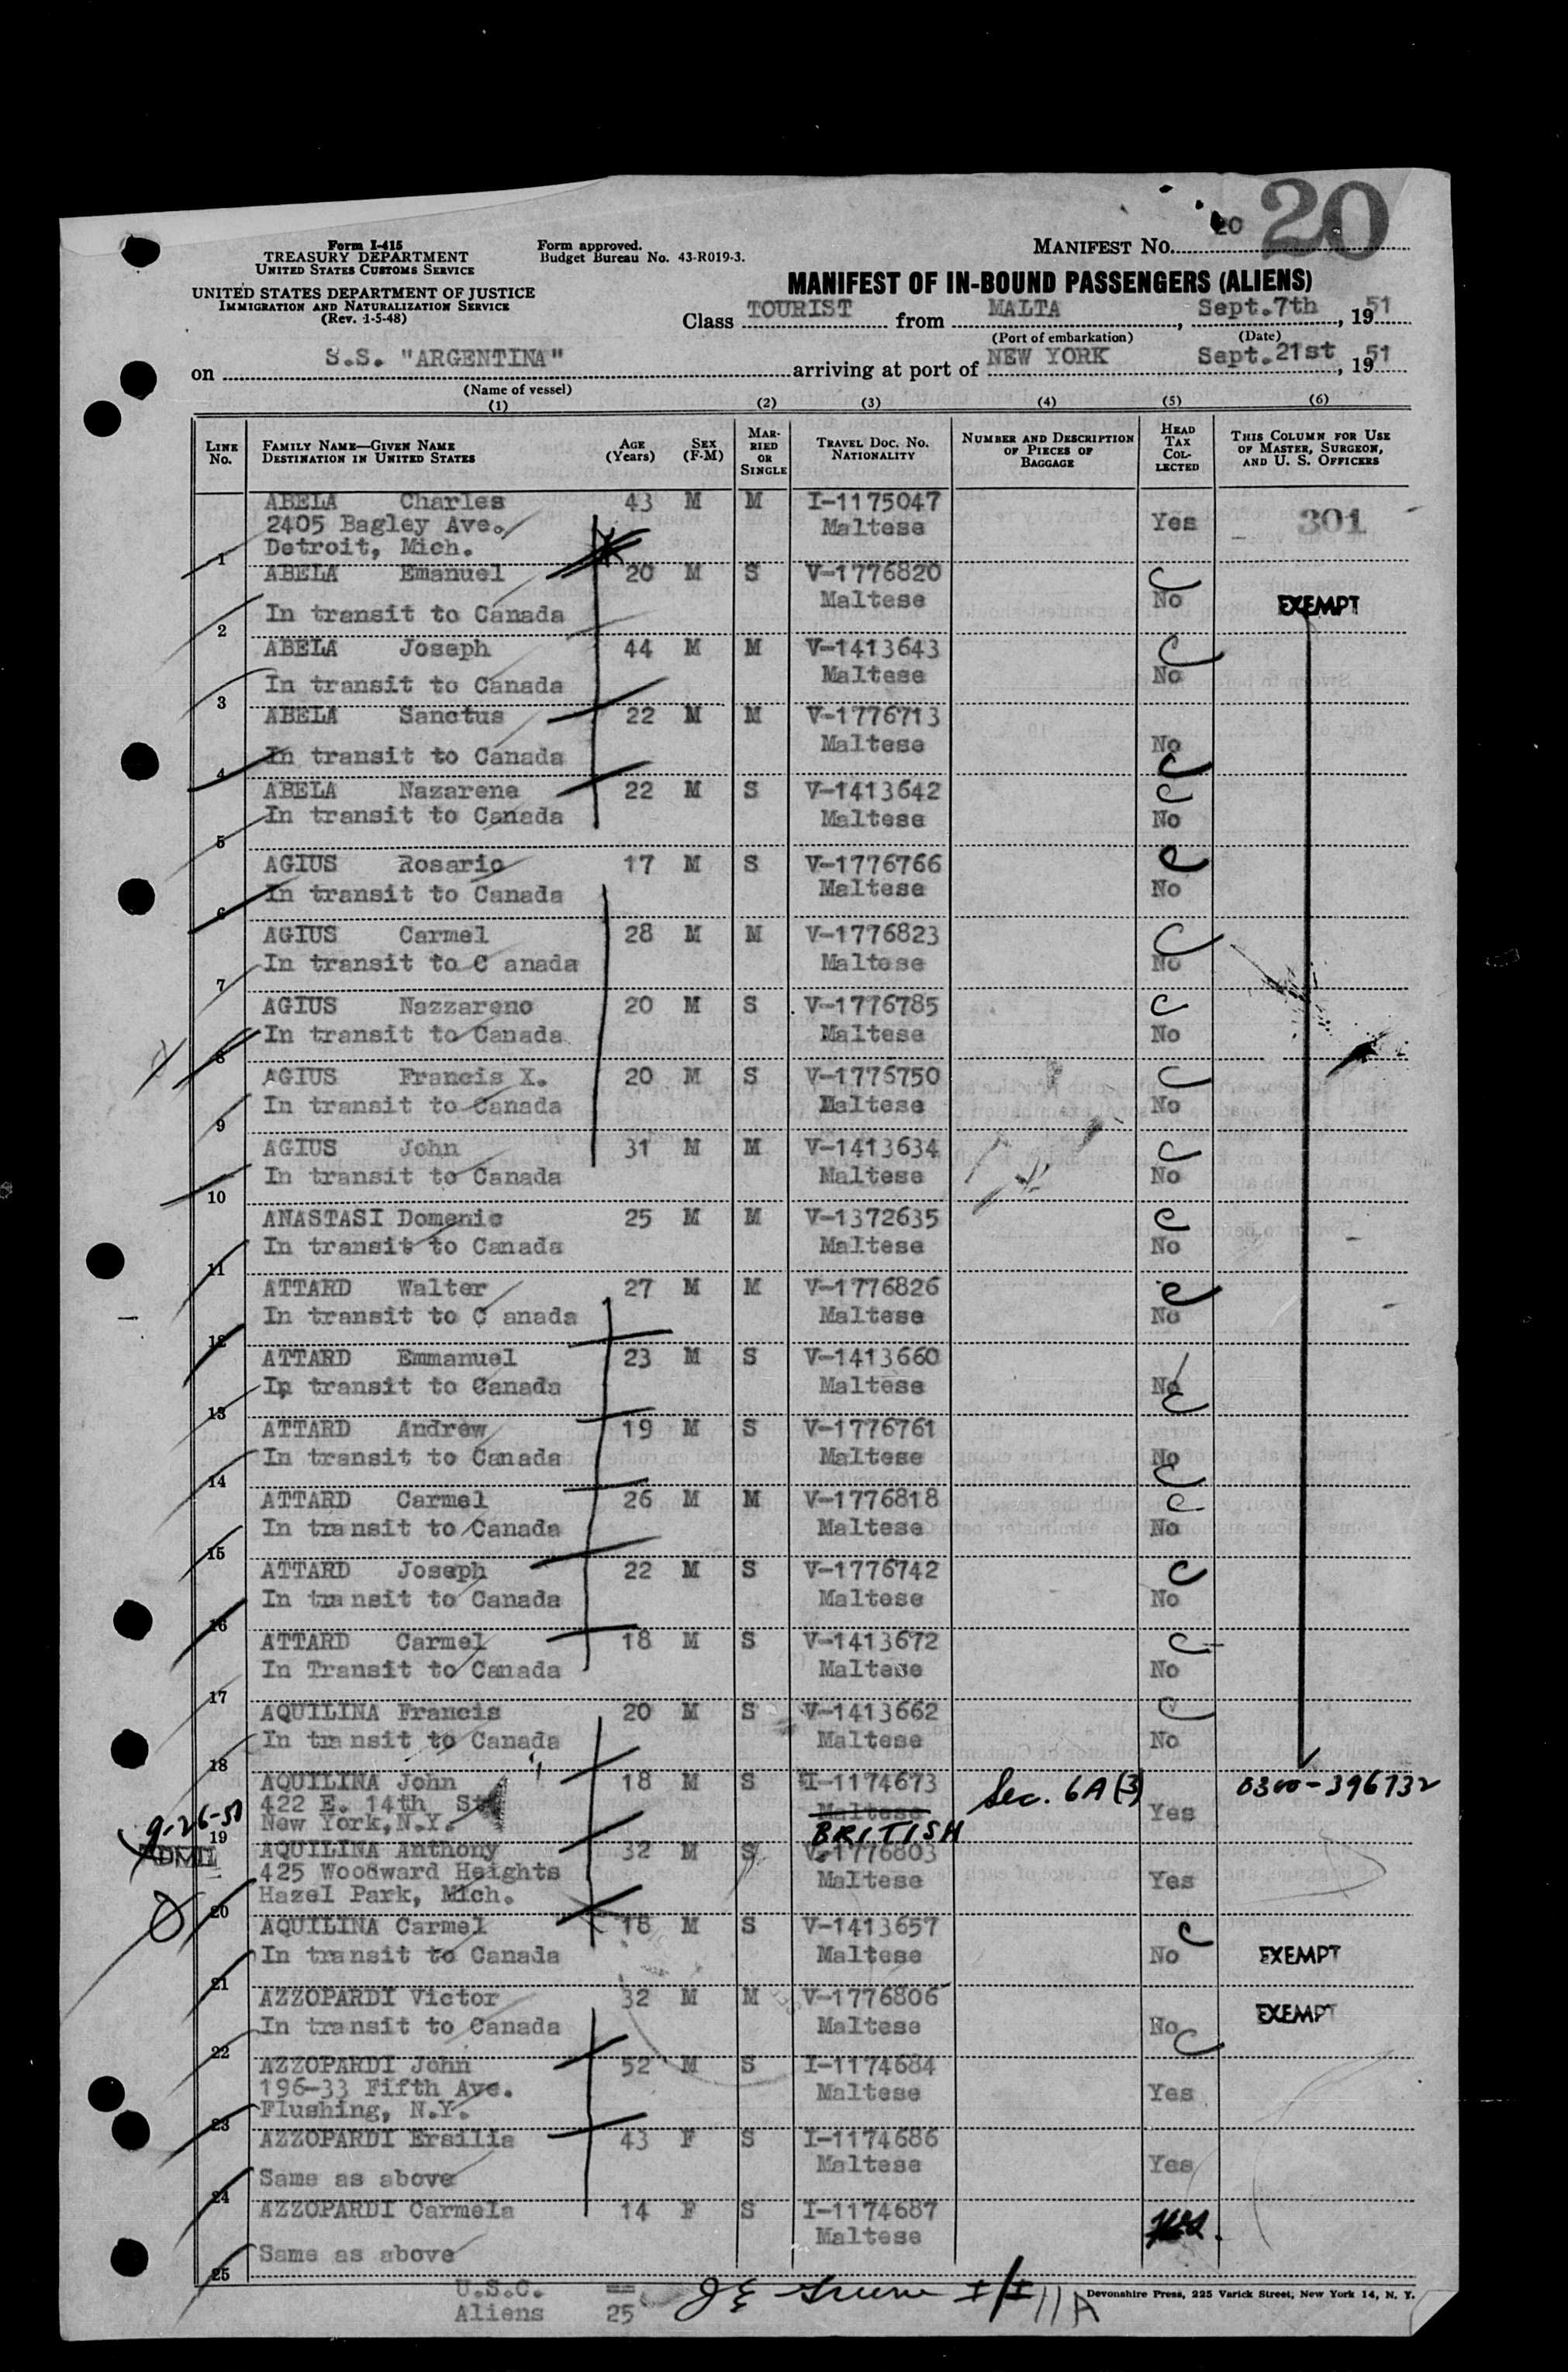 20
20
MANIFEST No.
Form I-415
TREASURY DEPARTMENT
UNITED STATES CUSTOMS SERVICE
Form approved.
Budget Bureau No. 43-R019-3.
UNITED STATES DEPARTMENT OF JUSTICE
IMMIGRATION AND NATURALIZATION SERVICE
(Rev. 1-5-48)
MANIFEST OF IN-BOUND PASSENGERS (ALIENS)
Class TOURIST from MALTA, Sept. 7th, 1951
(Port of embarkation) (Date)
on S.S. "ARGENTINA" arriving at port of NEW YORK Sept. 21st, 1951
(Name of vessel)
(1) (2) (3) (4) (5) (6)
LINE No. FAMILY NAME—GIVEN NAME DESTINATION IN UNITED STATES AGE (Years) SEX (F-M) MARRIED OR SINGLE TRAVEL DOC. No. NATIONALITY NUMBER AND DESCRIPTION OF PIECES OF BAGGAGE HEAD TAX COLLECTED THIS COLUMN FOR USE OF MASTER, SURGEON, AND U. S. OFFICERS
ABELA Charles 43 M M I-1175047
2405 Bagley Ave. Maltese Yes 301
Detroit, Mich.
1
ABELA Emanuel 20 M S V-1776820 C
Maltese No EXEMPT
In transit to Canada
2
ABELA Joseph 44 M M V-1413643 C
Maltese No
In transit to Canada
3
ABELA Sanctus 22 M M V-1776713
Maltese No
In transit to Canada C
4
ABELA Nazarene 22 M S V-1413642 C
In transit to Canada Maltese No
5
AGIUS Rosario 17 M S V-1776766 C
In transit to Canada Maltese No
6
AGIUS Carmel 28 M M V-1776823 C
In transit to C anada Maltese No
7
AGIUS Nazzareno 20 M S V-1776785 C
In transit to Canada Maltese No
8
AGIUS Francis X. 20 M S V-1776750 C
In transit to Canada Maltese No
9
AGIUS John 31 M M V-1413634 C
In transit to Canada Maltese No
10
ANASTASI Domenic 25 M M V-1372635 C
In transit to Canada Maltese No
11
ATTARD Walter 27 M M V-1776826 C
In transit to C anada Maltese No
12
ATTARD Emmanuel 23 M S V-1413660
In transit to Canada Maltese No
13 C
ATTARD Andrew 19 M S V-1776761
In transit to Canada Maltese No
14 C
ATTARD Carmel 26 M M V-1776818 C
In transit to Canada Maltese No
15
ATTARD Joseph 22 M S V-1776742 C
In transit to Canada Maltese No
16
ATTARD Carmel 18 M S V-1413672 C
In Transit to Canada Maltese No
17
AQUILINA Francis 20 M S V-1413662 C
In transit to Canada Maltese No
18
AQUILINA John 18 M S I-1174673 Sec. 6A(3) 0300-396732
422 E. 14th St Maltese Yes
New York, N.Y. BRITISH
9-26-51
19
ADMIT
AQUILINA Anthony 32 M S V-1776803
425 Woodward Heights Maltese Yes
Hazel Park, Mich.
20
AQUILINA Carmel 18 M S V-1413657 C
In transit to Canada Maltese No EXEMPT
21
AZZOPARDI Victor 32 M M V-1776806 EXEMPT
In transit to Canada Maltese No
22 C
AZZOPARDI John 52 M S I-1174684
196-33 Fifth Ave. Maltese Yes
Flushing, N.Y.
23
AZZOPARDI Ersilia 43 F S I-1174686
Maltese Yes
Same as above
24
AZZOPARDI Carmela 14 F S I-1174687
Maltese
Same as above
25
U.S.C. --
Aliens 25
11A
Devonshire Press, 225 Varick Street, New York 14, N. Y.